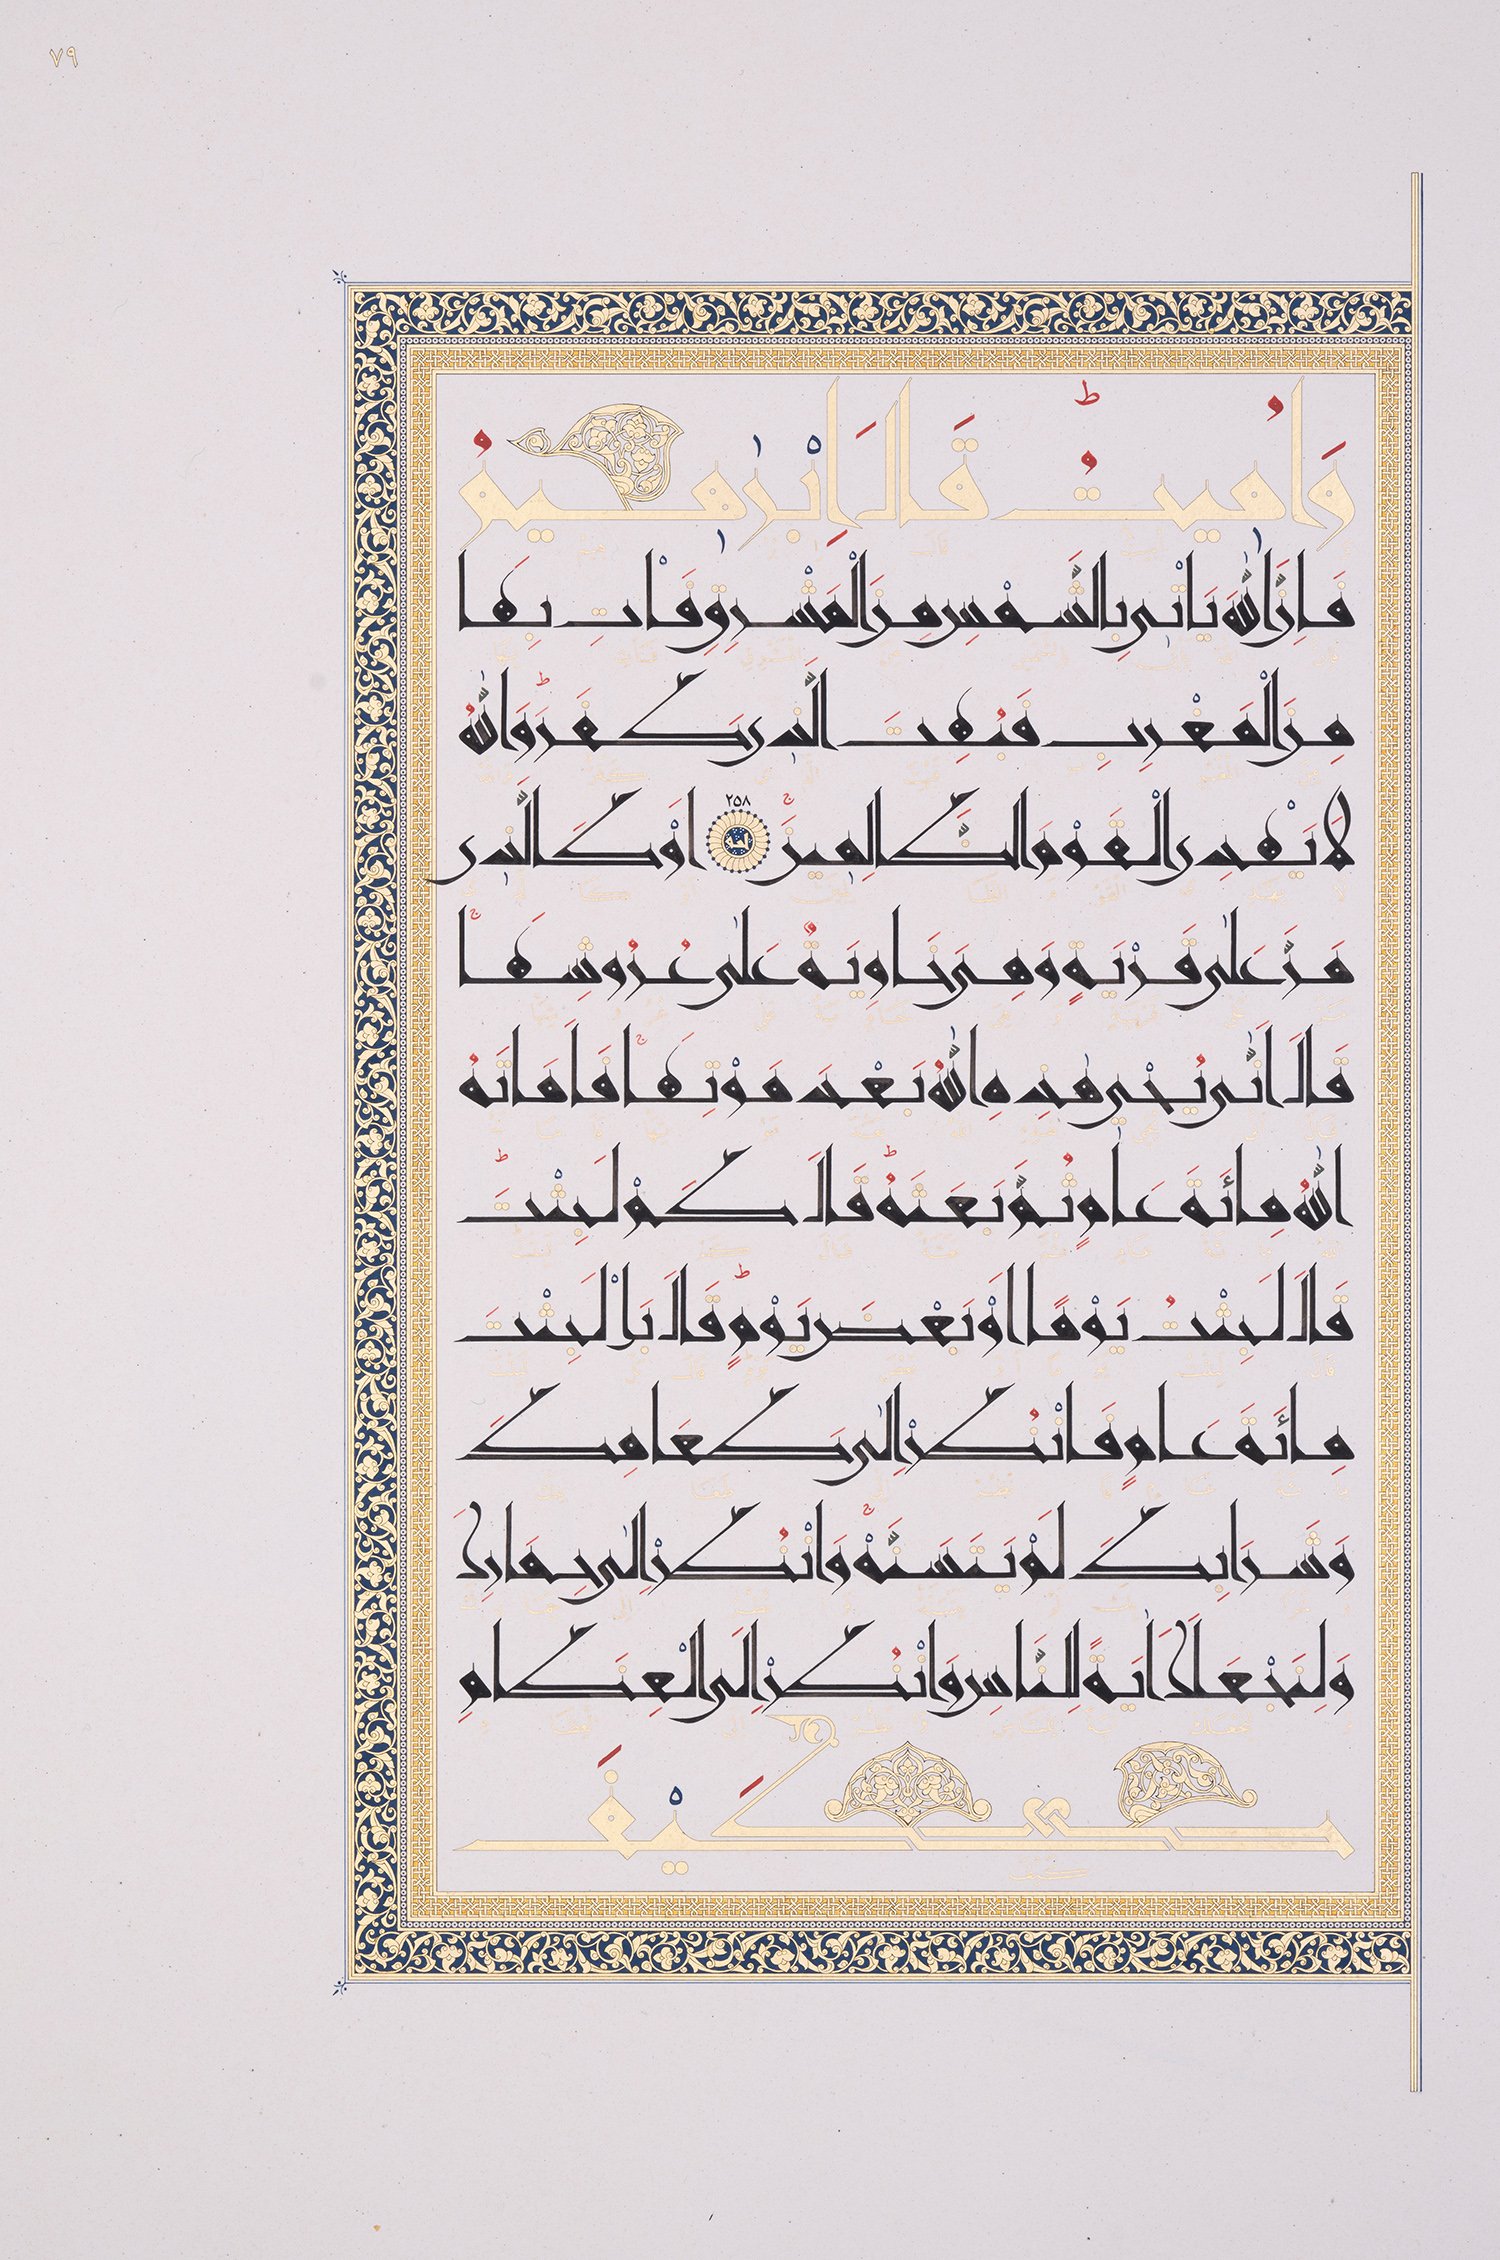 ٧٩
وَأُمِيتُ ۖ قَالَ إِبْرَٰهِيمُ
فَإِنَّ ٱللَّهَ يَأْتِى بِٱلشَّمْسِ مِنَ ٱلْمَشْرِقِ فَأْتِ بِهَا
مِنَ ٱلْمَغْرِبِ فَبُهِتَ ٱلَّذِى كَفَرَ ۗ وَٱللَّهُ
لَا يَهْدِى ٱلْقَوْمَ ٱلظَّٰلِمِينَ ٢٥٨ أَوْ كَٱلَّذِى
مَرَّ عَلَىٰ قَرْيَةٍ وَهِىَ خَاوِيَةٌ عَلَىٰ عُرُوشِهَا
قَالَ أَنَّىٰ يُحْىِۦ هَٰذِهِ ٱللَّهُ بَعْدَ مَوْتِهَا ۖ فَأَمَاتَهُ
ٱللَّهُ مِا۟ئَةَ عَامٍ ثُمَّ بَعَثَهُۥ ۖ قَالَ كَمْ لَبِثْتَ ۖ
قَالَ لَبِثْتُ يَوْمًا أَوْ بَعْضَ يَوْمٍ ۖ قَالَ بَل لَّبِثْتَ
مِا۟ئَةَ عَامٍ فَٱنظُرْ إِلَىٰ طَعَامِكَ
وَشَرَابِكَ لَمْ يَتَسَنَّهْ ۖ وَٱنظُرْ إِلَىٰ حِمَارِكَ
وَلِنَجْعَلَكَ ءَايَةً لِّلنَّاسِ ۖ وَٱنظُرْ إِلَى ٱلْعِظَامِ
كَيْفَ